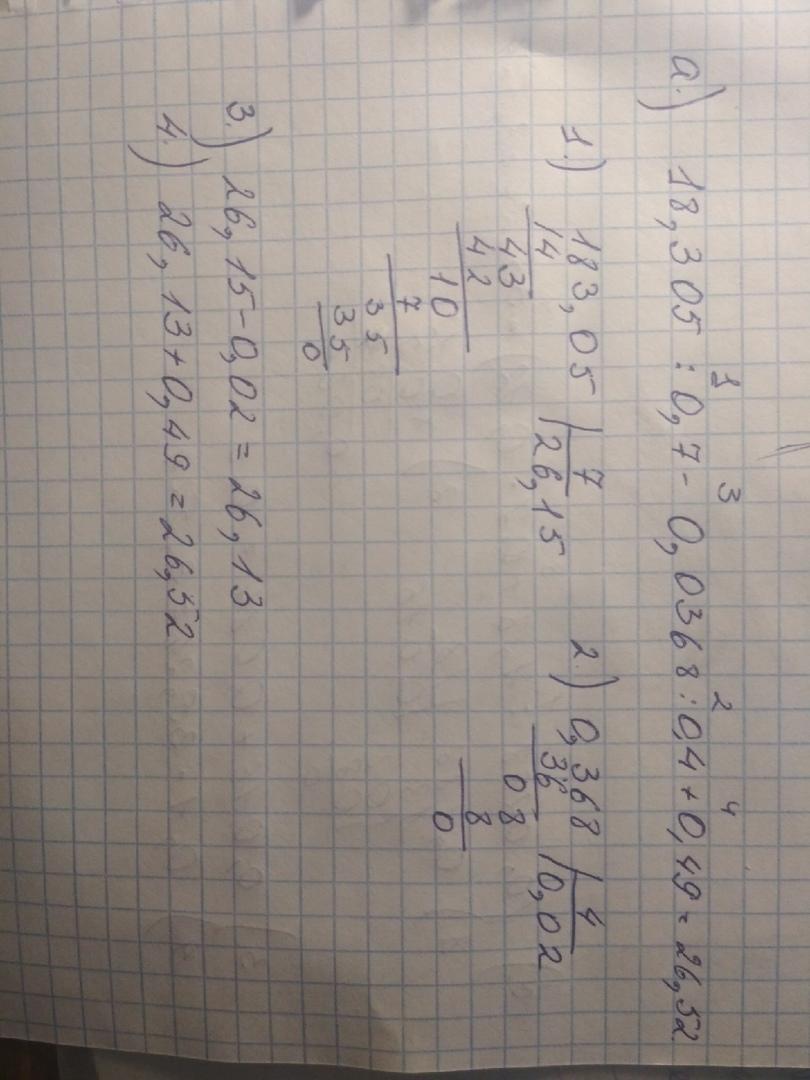 а.) 18,305 : 0,7 - 0,0368 : 0,4 + 0,49 = 26,52
1 3 2 4
1.) 183,05 | 7
14 26,15
43
42
10
7
35
35
0
2.) 0,368 | 4
36 0,02
08
8
0
3.) 26,15-0,02 = 26,13
4.) 26,13+0,49 = 26,52